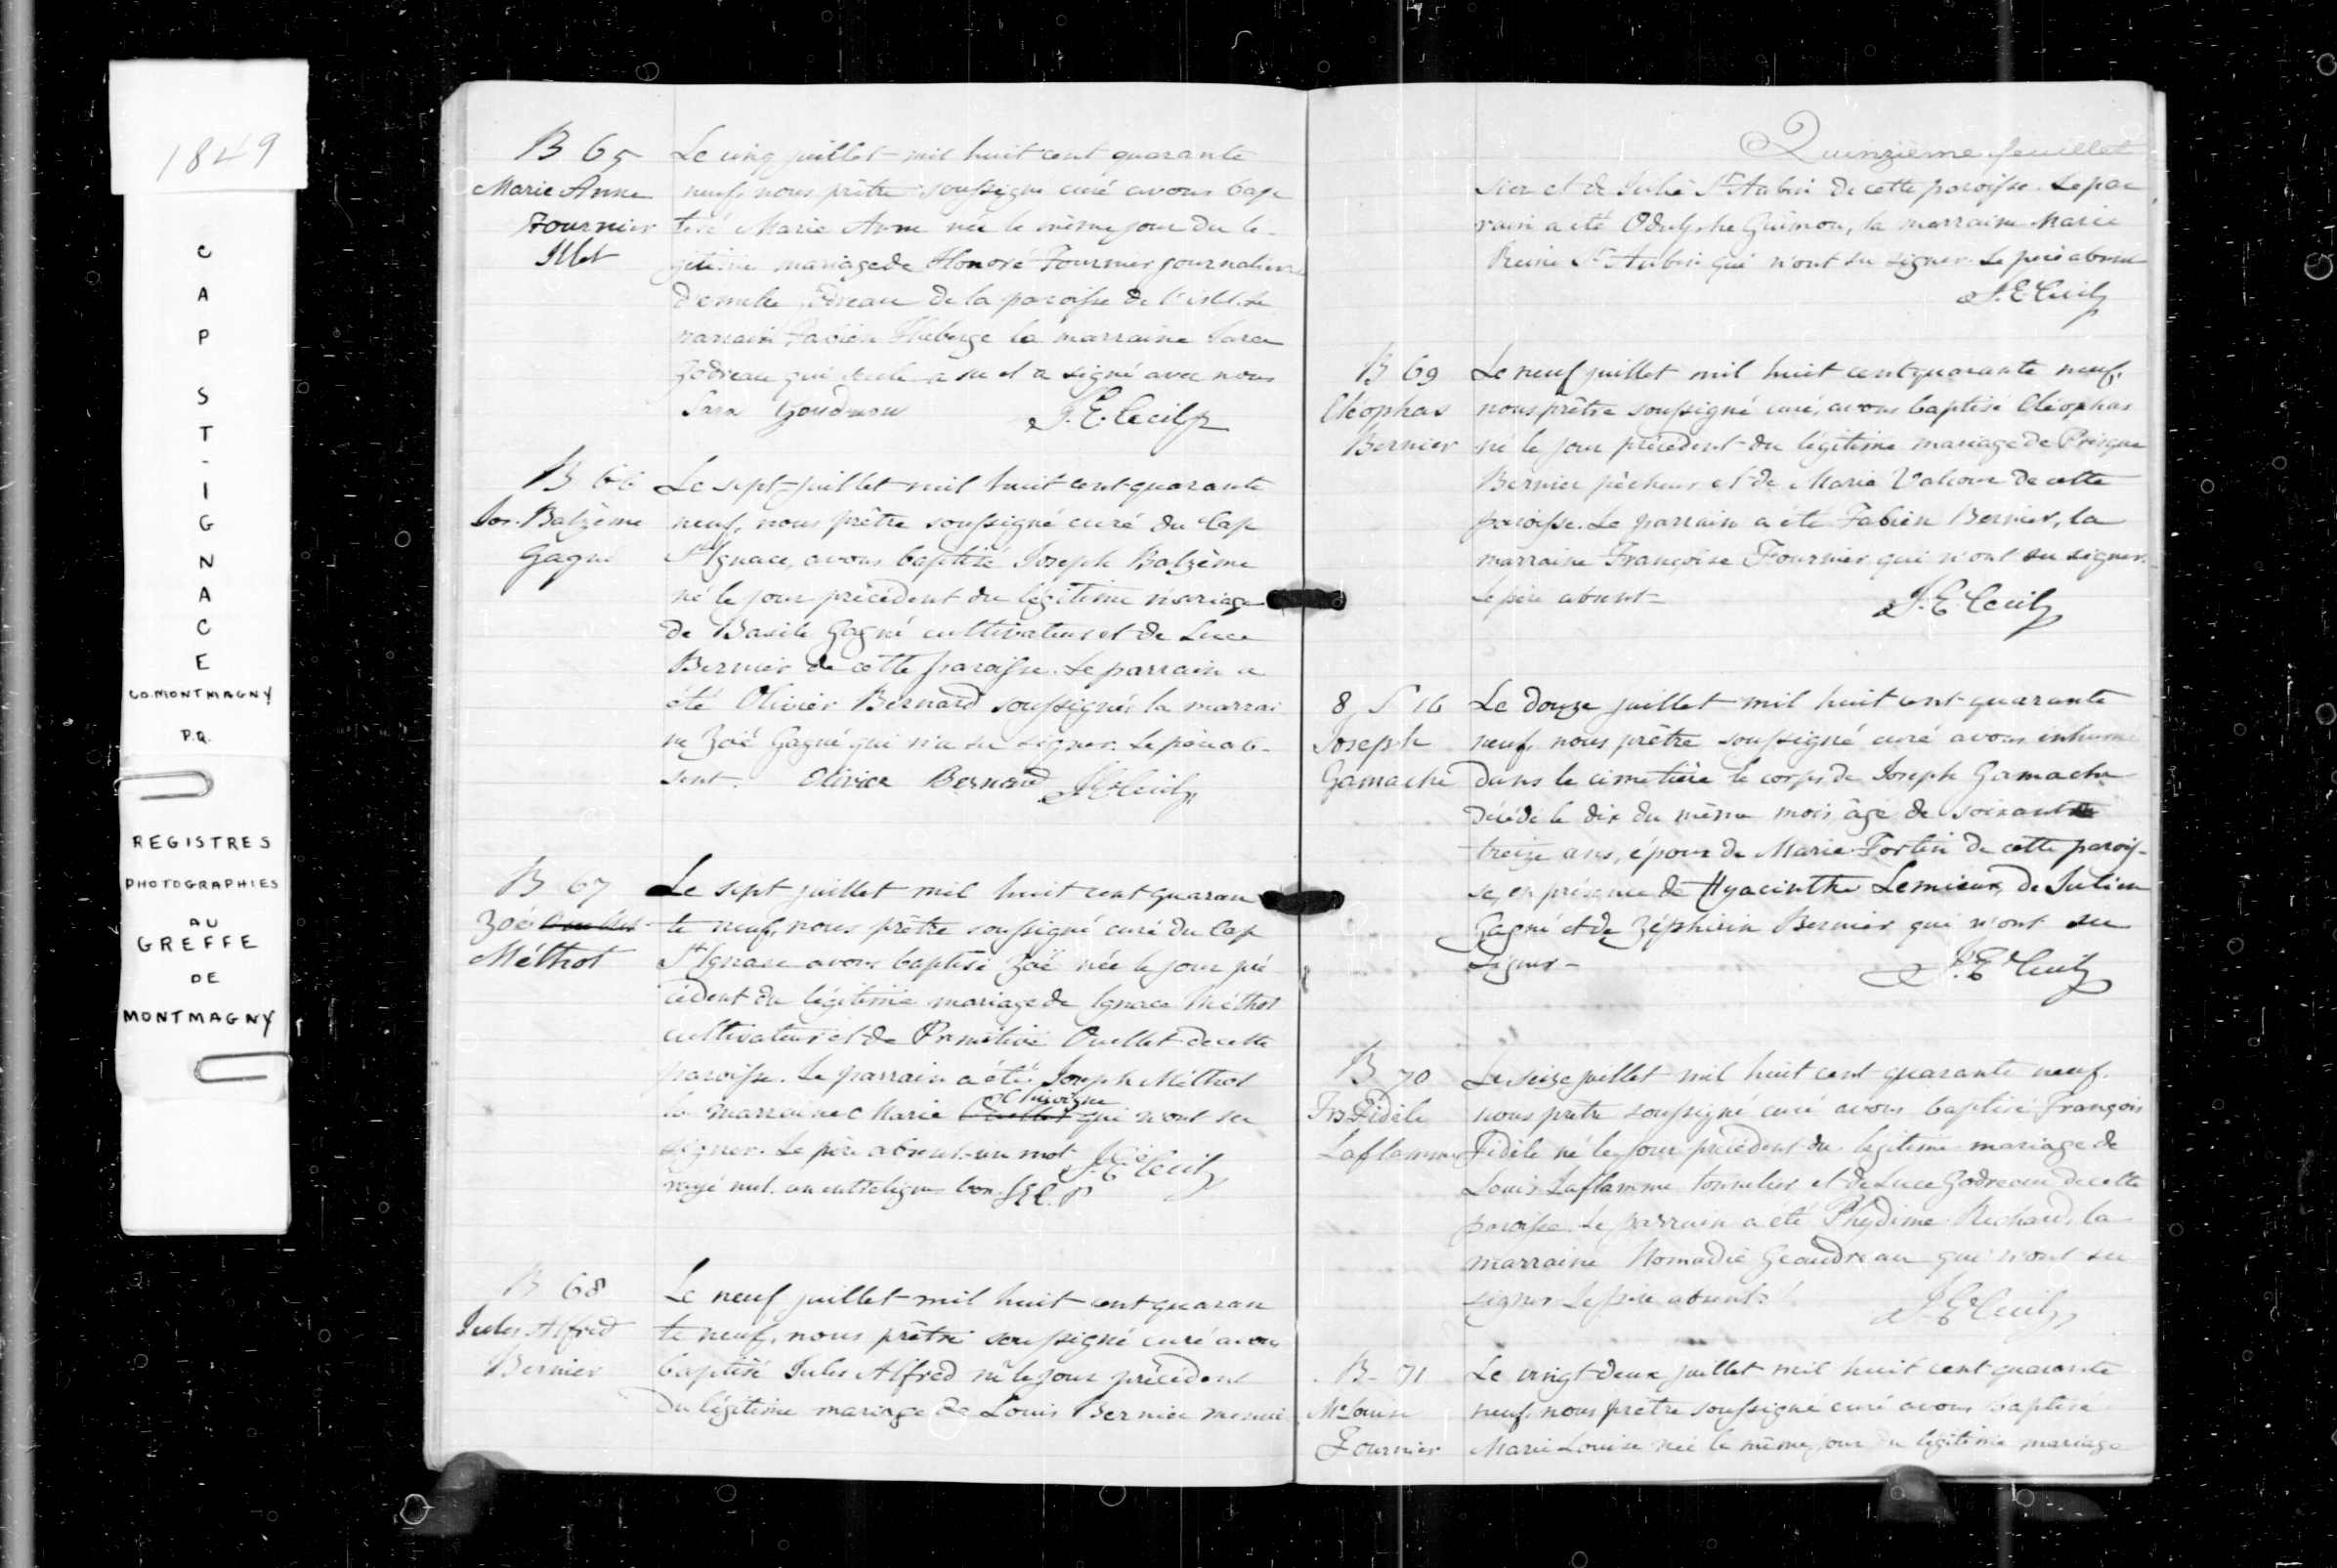 1849
CAP ST-IGNACE
CO. MONTMAGNY
P.Q.
REGISTRES
PHOTOGRAPHIES
AU
GREFFE
DE
MONTMAGNY
B 65
Marie Anne
Fournier
Illet
Le cinq juillet mil huit cent quarante
neuf, nous prêtre soussigné curé avons bap
tisé Marie Anne née le même jour du lé-
gitime mariage de Honoré Fournier journalier
d'Emelie Godreau de la paroisse de l'Islet. Le
parrain Fabien Theberge la marraine Sara
Godreau qui seule a su et a signé avec nous
Sara Goudreau J. E. Cecil Ptr
B 66
Jos. Balzème
Gagné
Le sept juillet mil huit cent quarante
neuf, nous prêtre soussigné curé du Cap
St Ignace, avons baptisé Joseph Balzème
né le jour précédent du légitime mariage
de Basile Gagné cultivateur et de Luce
Bernier de cette paroisse. Le parrain a
été Olivier Bernard soussigné, la marrai
ne Zoé Gagné qui n'a su signer. Le père ab-
sent. Olivier Bernard J. E. Cecil Ptr
B 67
Zoé Ouellet
Méthot
Le sept juillet mil huit cent quaran
te neuf, nous prêtre soussigné curé du Cap
St Ignace avons baptisé Zoë née le jour pré
cédent du légitime mariage de Ignace Méthot
cultivateur et de Primitive Ouellet de cette
paroisse. Le parrain a été Joseph Méthot
la marraine Marie qui n'ont su
signer. Le père absent. un mot J. E. Cecil
rayé nul. un entreligne bon. J.E.C. P
B 68
Jules Alfred
Bernier
Le neuf juillet mil huit cent quaran
te neuf, nous prêtre soussigné curé avons
baptisé Jules Alfred né le jour précédent
du légitime mariage de Louis Bernier menui
Quinzième feuillet
sier et de Julie St Aubin de cette paroisse. Le par
rain a été Odulphe Guimon, la marraine Marie
Reine St Aubin qui n'ont su signer. Le père absent
J. E. Cecil Ptr
B 69
Cléophas
Bernier
Le neuf juillet mil huit cent quarante neuf,
nous prêtre soussigné curé, avons baptisé Cléophas
né le jour précédent du légitime mariage de Prisque
Bernier pêcheur et de Marie Valcour de cette
paroisse. Le parrain a été Fabien Bernier, la
marraine Françoise Fournier qui n'ont su signer.
Le père absent J. E. Cecil Ptr
8 S 16
Joseph
Gamache
Le douze juillet mil huit cent quarante
neuf, nous prêtre soussigné curé avons inhumé
dans le cimetière le corps de Joseph Gamache
décédé le dix du même mois, âgé de soixante
treize ans, époux de Marie Fortin de cette parois-
se, en présence de Hyacinthe Lemieux, de Julien
Gagné et de Zéphirin Bernier qui n'ont su
signer - J. E. Cecil Ptr
B 70
Frs Fidèle
Laflamme
Le seize juillet mil huit cent quarante neuf,
nous prêtre soussigné curé avons baptisé François
Fidèle né le jour précédent du légitime mariage de
Louis Laflamme tonnelier et de Luce Godreau de cette
paroisse. Le parrain a été Phydime Richard, la
marraine Nomadie Geaudreau qui n'ont su
signer Le père absent J. E. Cecil Ptr
B - 71
Me Louise
Fournier
Le vingt deux juillet mil huit cent quarante
neuf, nous prêtre soussigné curé avons baptisé
Marie Louise née le même jour du légitime mariage